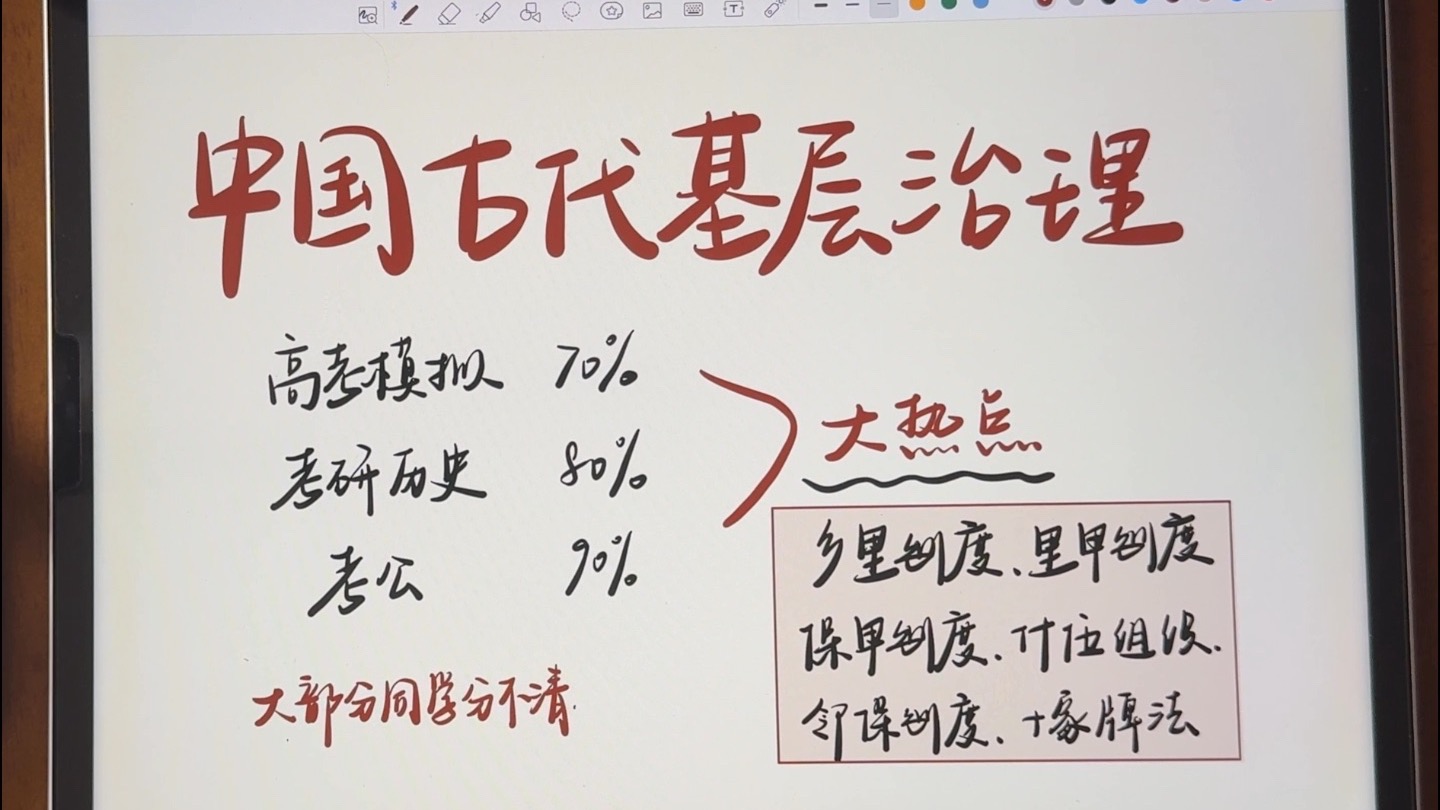 中国古代基层治理
高考模拟 70%
考研历史 80%
考公 90%
大热点
大部分同学分不清.
乡里制度、里甲制度
保甲制度、什伍组织、
邻保制度、十家牌法